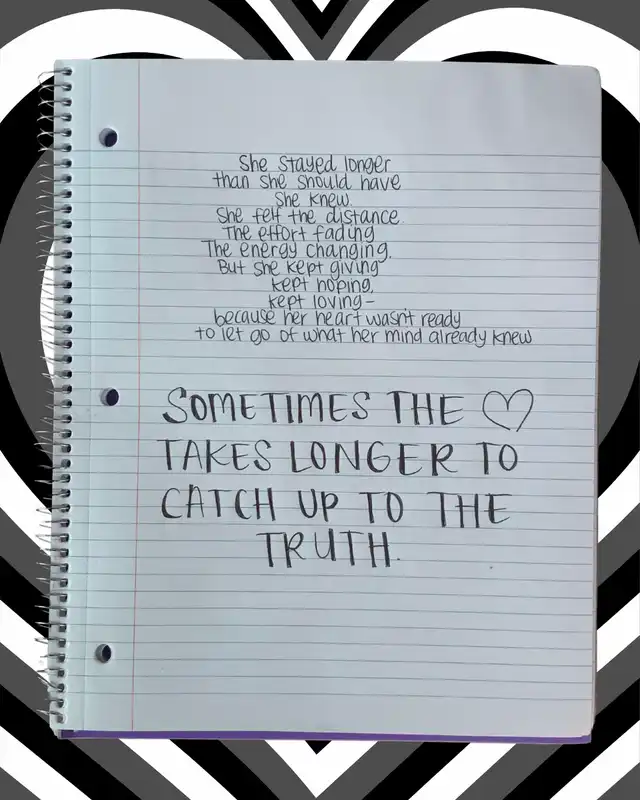 She stayed longer
than she should have
She knew.
She felt the distance.
The effort fading
The energy changing.
But she kept giving
kept hoping,
kept loving—
because her heart wasn't ready
to let go of what her mind already knew
SOMETIMES THE ♡
TAKES LONGER TO
CATCH UP TO THE
TRUTH.